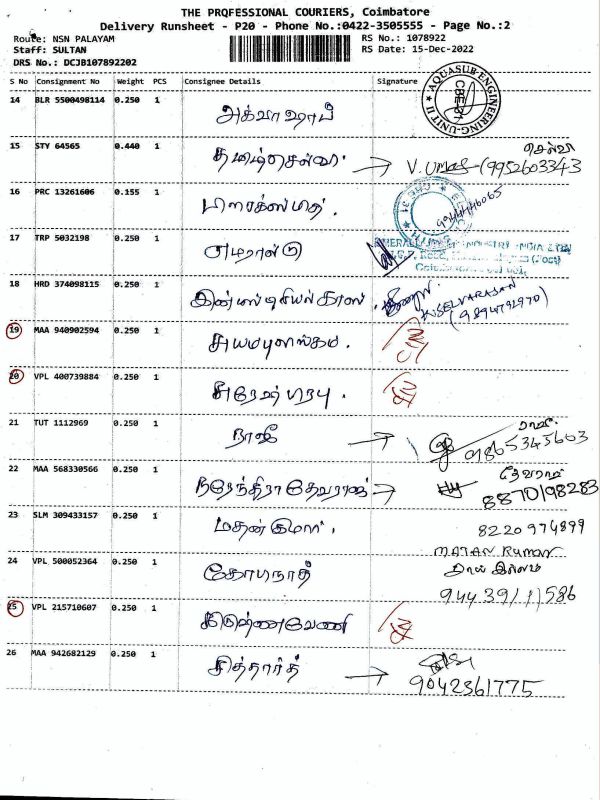 THE PROFESSIONAL COURIERS, Coimbatore
Delivery Runsheet - P20 - Phone No.:0422-3505555 - Page No.:2
Route: NSN PALAYAM
Staff: SULTAN
DRS No.: DCJB107892202
RS No.: 1078922
RS Date: 15-Dec-2022
S No Consignment No Weight PCS Consignee Details Signature
14 BLR 5500498114 0.250 1 அக்வா ஷாப்
AQUASUB ENGINEERING-UNIT II
15 STY 64565 0.440 1 தமிழ்செல்வி. செல்வி
V. UMAS-(9952603343
16 PRC 13261606 0.155 1
9944446065
17 TRP 5032198 0.250 1 எமரால்டு
18 HRD 374098115 0.250 1
K.SELVARASAN
(9894792970)
19 MAA 940902594 0.250 1
20 VPL 400739884 0.250 1 சுரேஷ் பாபு.
21 TUT 1112969 0.250 1
9865345663
22 MAA 568330566 0.250 1 நரேந்திரா தேவராஜ் தேவராஜ்
8870198283
23 SLM 309433157 0.250 1 மதன் குமார். 8220974899
MATAN KUMAR
24 VPL 500052364 0.250 1 கோபிநாத் தாய் இல்லம்
9443911586
25 VPL 215710607 0.250 1 கிருஷ்ணவேணி
26 MAA 942682129 0.250 1 சித்தார்த்
9042361775